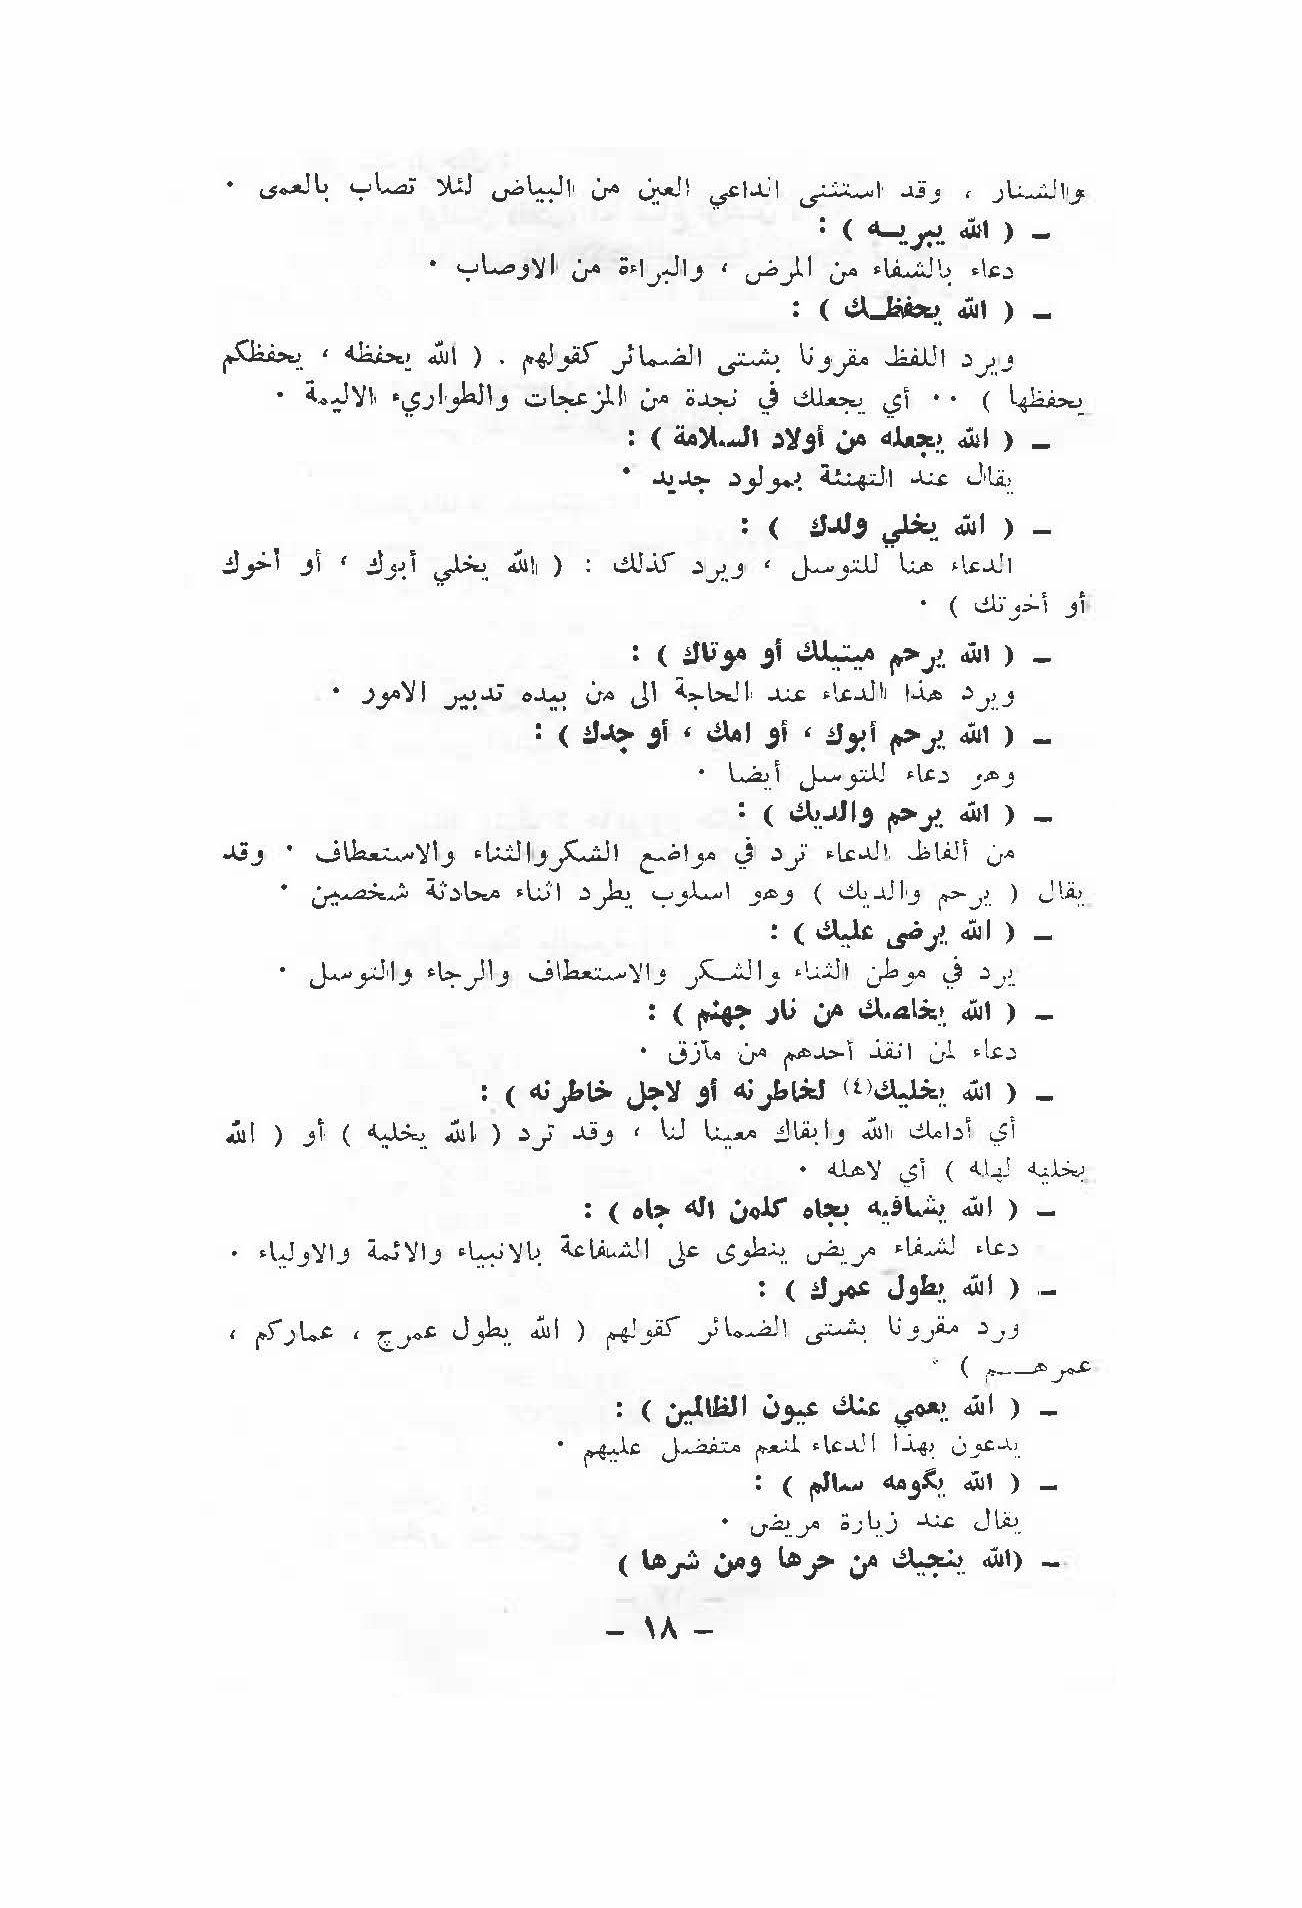 والشنار ، وقد استثنى الداعي العين من البياض لئلا تصاب بالعمى ٠
ـ ( الله يبريـه ) :
دعاء بالشفاء من المرض ، والبراءة من الاوصاب ٠
ـ ( الله يحفظـك ) :
ويرد اللفظ مقرونا بشتى الضمائر كقولهم . ( الله يحفظه ، يحفظكم
يحفظها ) ٠٠ أي يجعلك في نجدة من المزعجات والطواريء الاليمة ٠
ـ ( الله يجعله من أولاد السلامة ) :
يقال عند التهنئة بمولود جديد ٠
ـ ( الله يخلي ولدك ) :
الدعاء هنا للتوسل ، ويرد كذلك : ( الله يخلي أبوك ، أو أخوك
أو أخوتك ) ٠
ـ ( الله يرحم ميتيلك أو موتاك ) :
ويرد هذا الدعاء عند الحاجة الى من بيده تدبير الامور ٠
ـ ( الله يرحم أبوك ، أو امك ، أو جدك ) :
وهو دعاء للتوسل أيضا ٠
ـ ( الله يرحم والديك ) :
من ألفاظ الدعاء ترد في مواضع الشكر والثناء والاستعطاف ٠ وقد
يقال ( يرحم والديك ) وهو اسلوب يطرد اثناء محادثة شخصين ٠
ـ ( الله يرضى عليك ) :
يرد في موطن الثناء والشـكر والاستعطاف والرجاء والتوسل ٠
ـ ( الله يخلصك من نار جهنم ) :
دعاء لمن انقذ أحدهم من مآزق ٠
ـ ( الله يخليك(٤) لخاطرنه أو لاجل خاطرنه ) :
أي أدامك الله وابقاك معينا لنا ، وقد ترد ( الله يخليه ) أو ( الله
يخليه لهله ) أي لاهله ٠
ـ ( الله يشافيه بجاه كلمن اله جاه ) :
دعاء لشفاء مريض ينطوى على الشفاعة بالانبياء والائمة والاولياء ٠
ـ ( الله يطول عمرك ) :
ورد مقرونا بشتى الضمائر كقولهم ( الله يطول عمرج ، عماركم ،
عمرهـــم ) ٠
ـ ( الله يعمي عنك عيون الظالمين ) :
يدعون بهذا الدعاء لمنعم متفضل عليهم ٠
ـ ( الله يگومه سالم ) :
يقال عند زيارة مريض ٠
ـ (الله ينجيك من حرها ومن شرها )
ـ ١٨ ـ